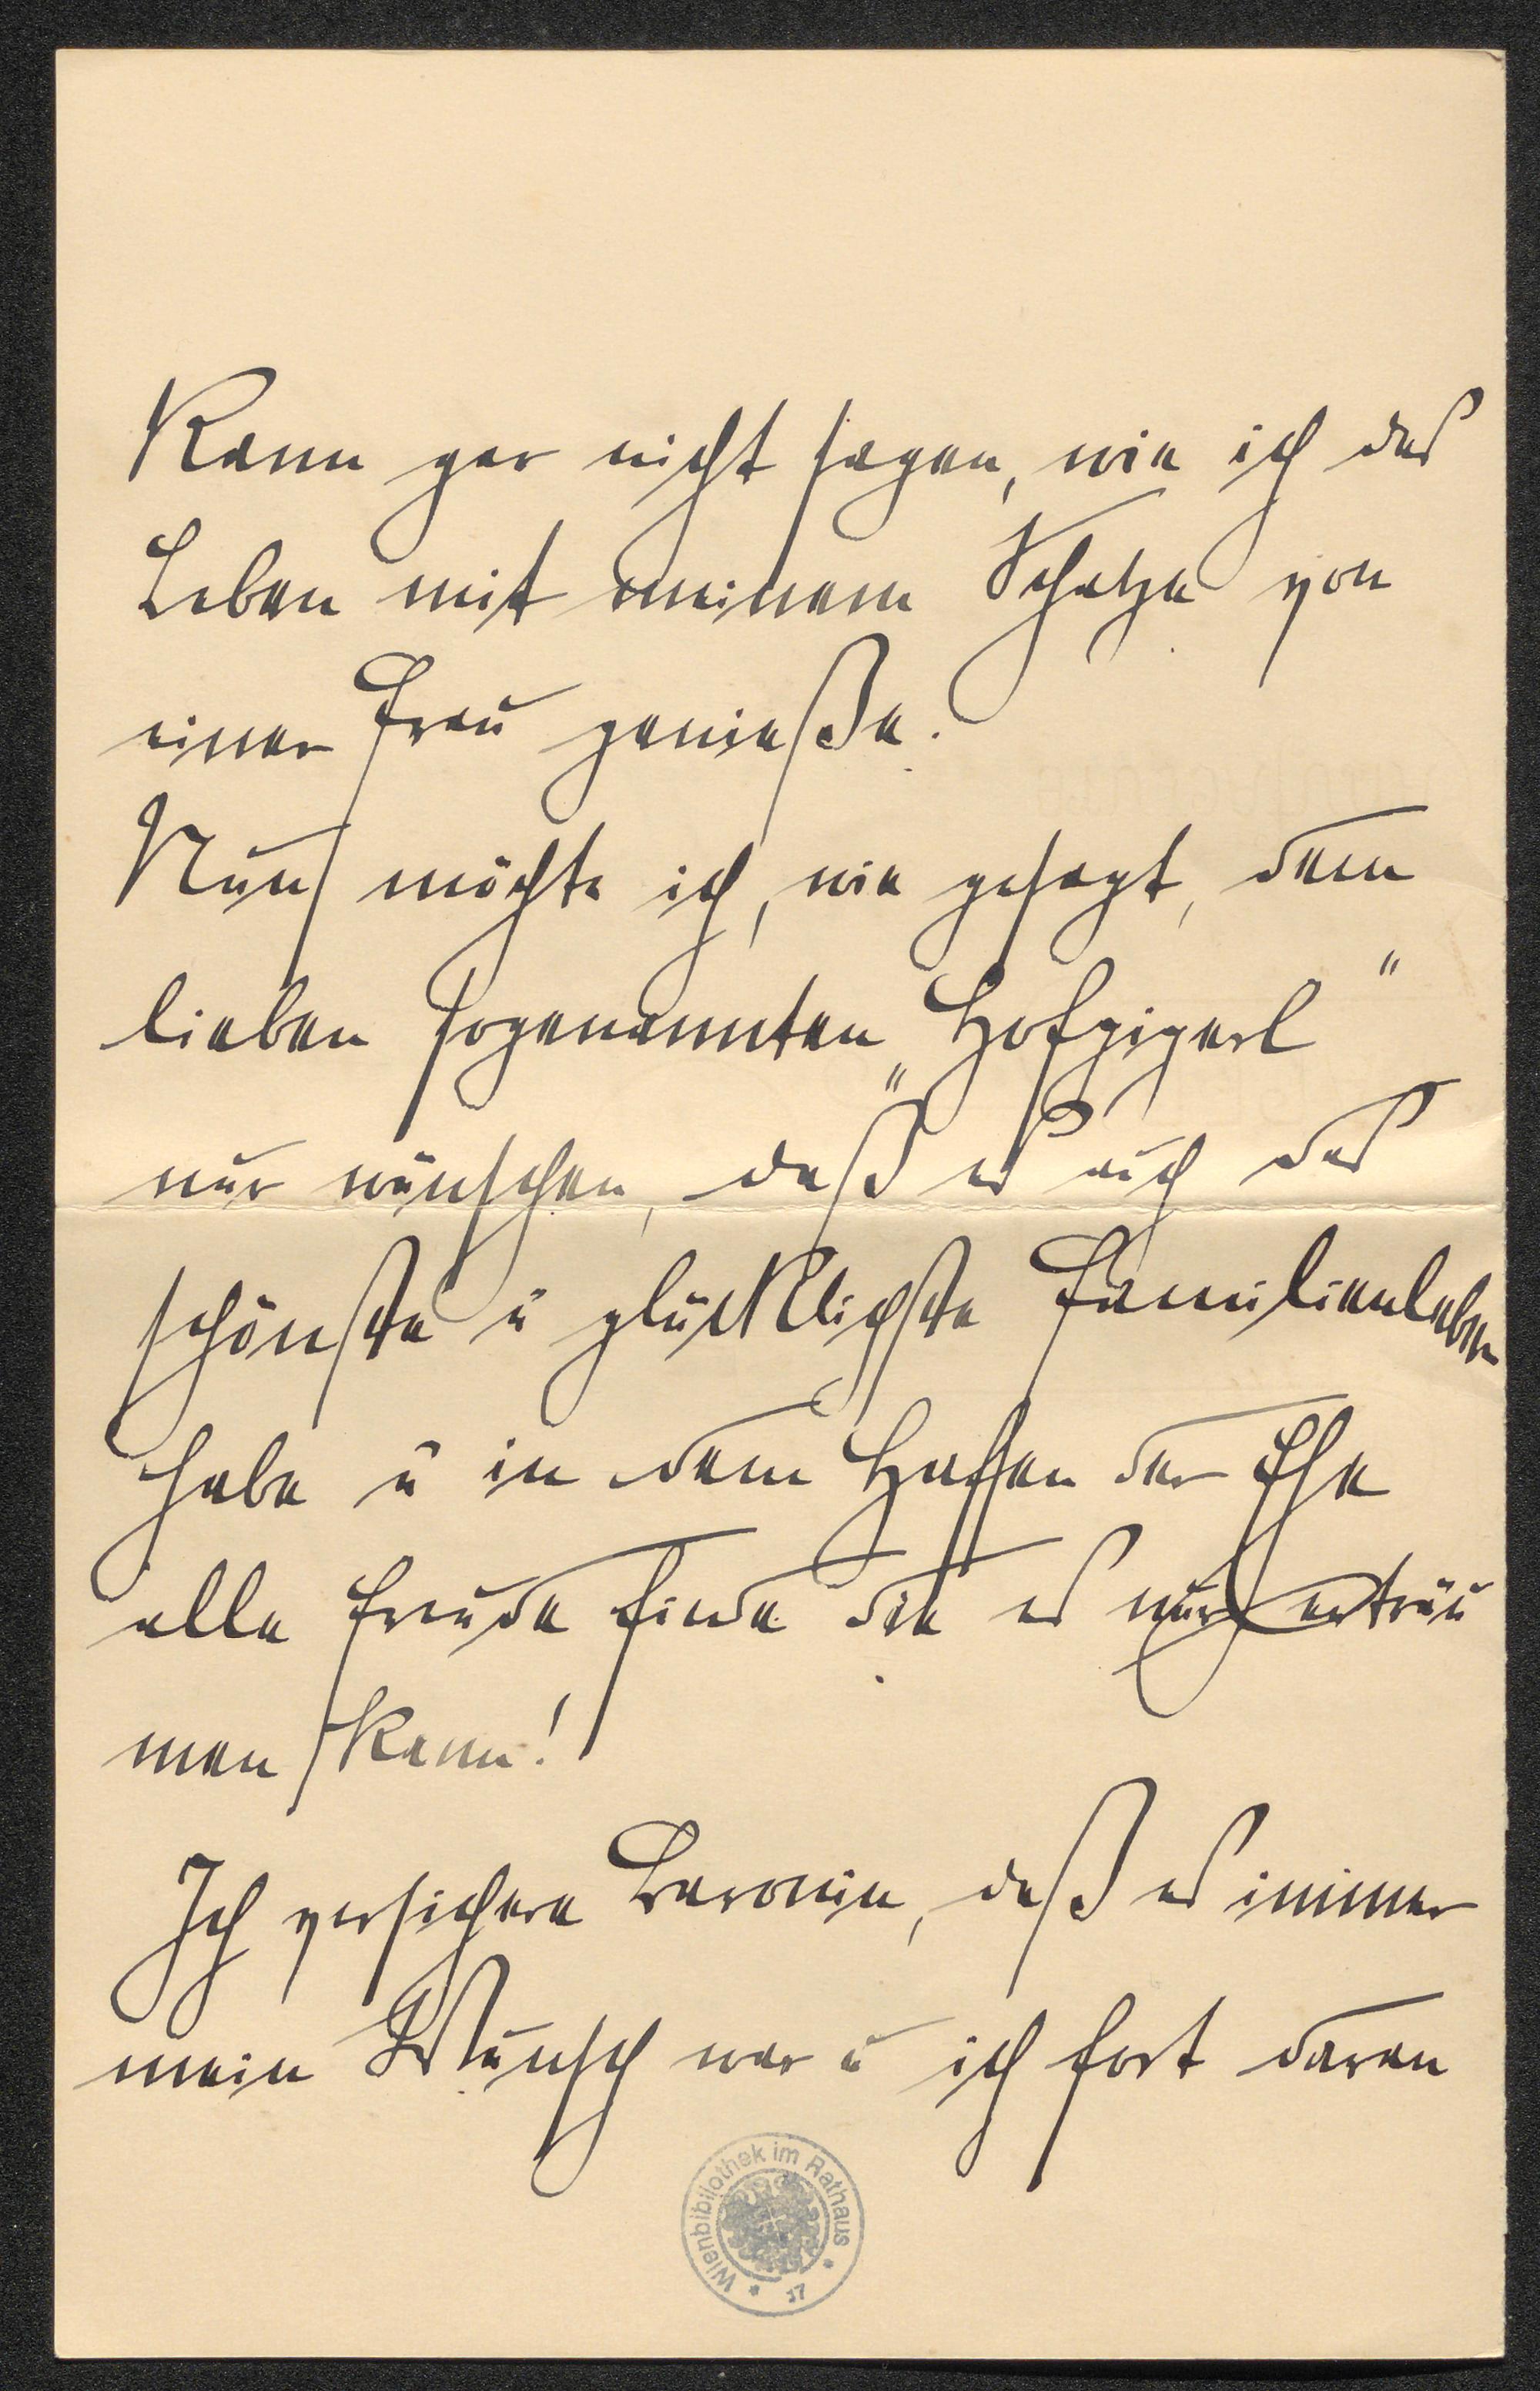 Kann gar nicht sagen, wie ich das
Leben mit meinem Schatze von
einer Frau genieße.
Nun möchte ich, wie gesagt, dem
lieben sogenannten „Hofgigerl"
nur wünschen, daß es auch das
schönste u glücklichste Familienleben
habe u in dem Haffen der Ehe
alle Freude finde die es nur erträu
men kann!
Ich versichere Baronin, daß es immer
mein Wunsch war u ich fort daran
Wienbibliothek im Rathaus * 17 *